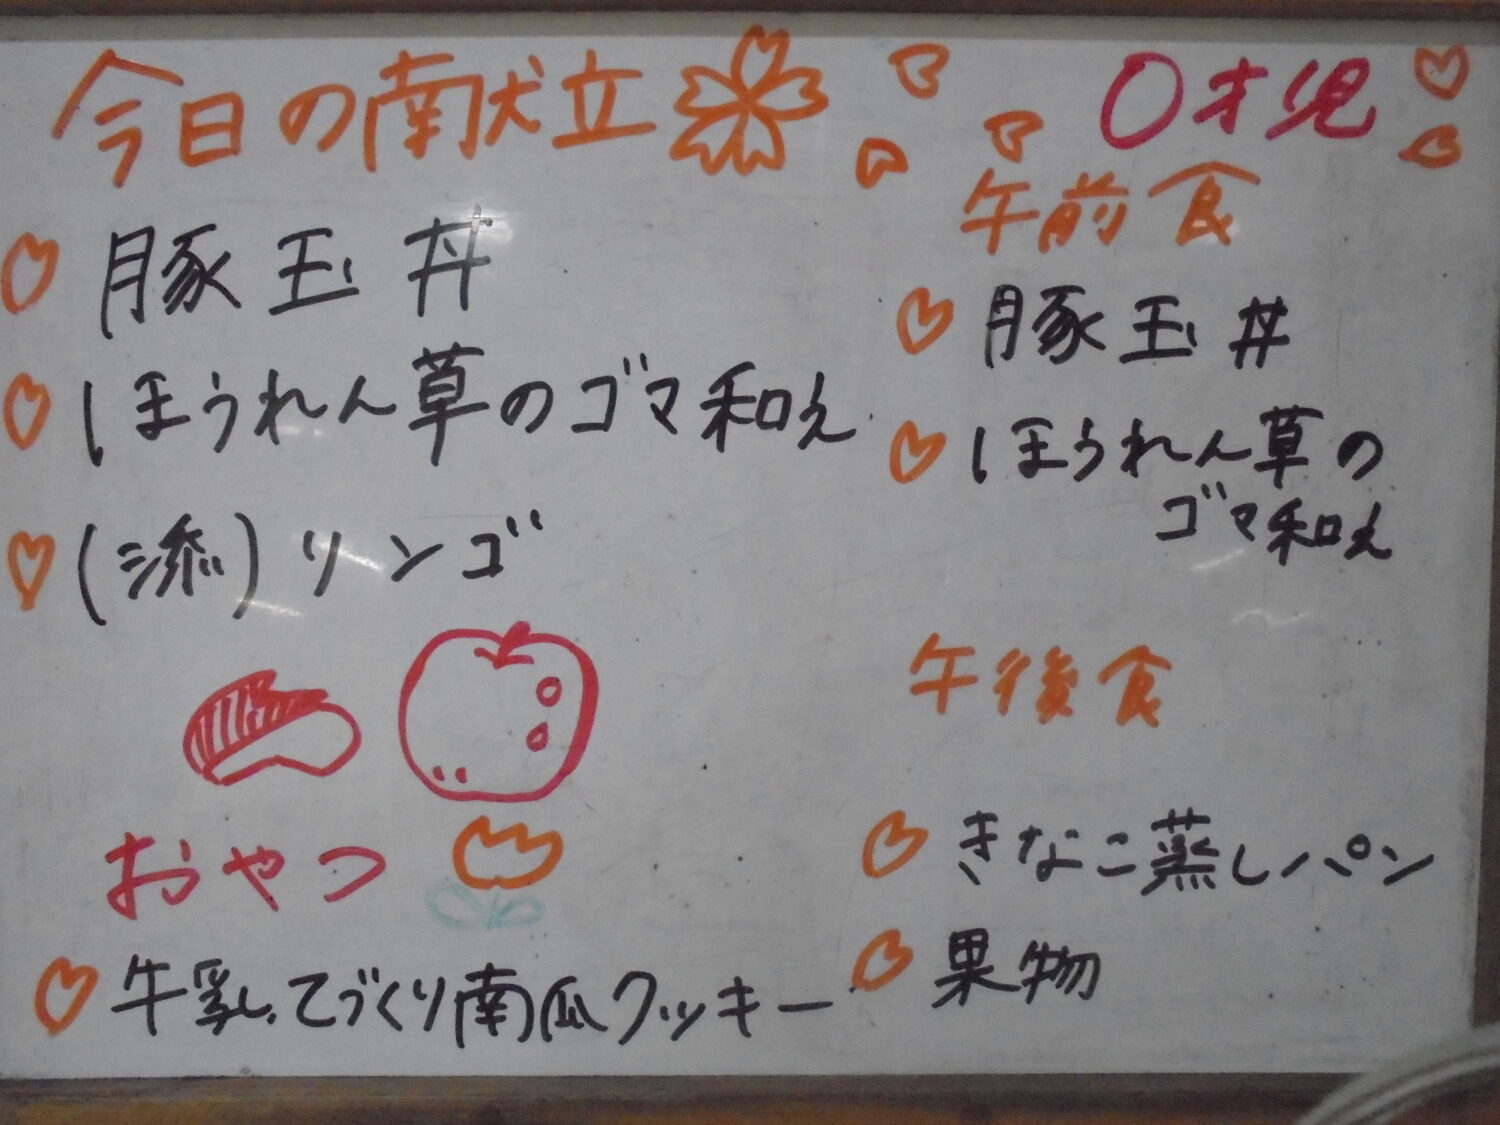 今日の献立
豚玉丼
ほうれん草のゴマ和え
(添)リンゴ
おやつ
牛乳.てづくり南瓜クッキー
0才児
午前食
豚玉丼
ほうれん草の
ゴマ和え
午後食
きなこ蒸しパン
果物